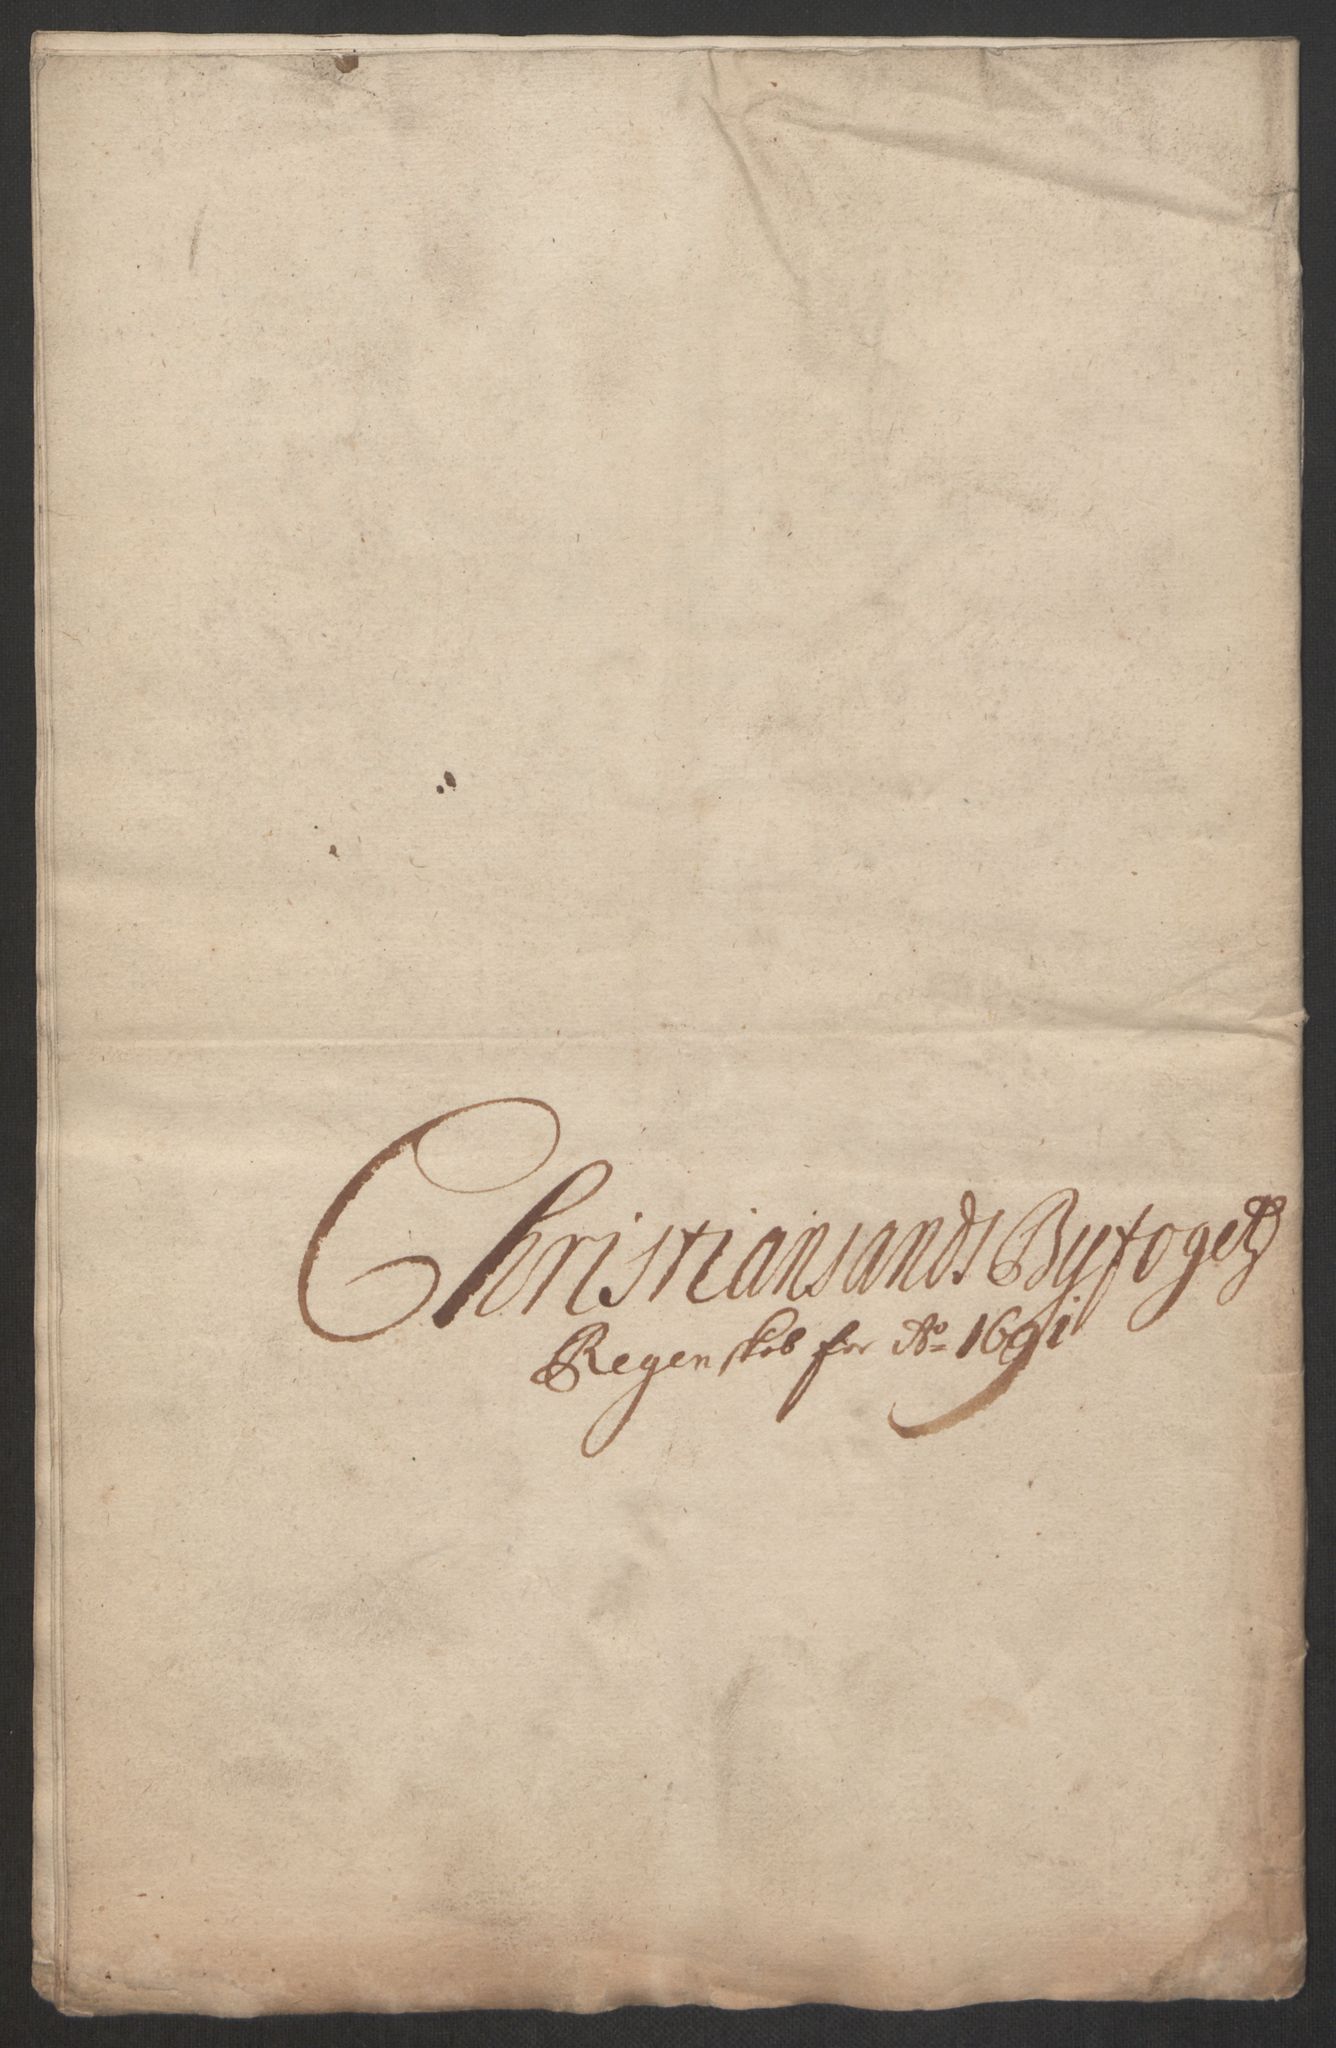 Christiansands Byfogets
Regenskab for Ao 1691